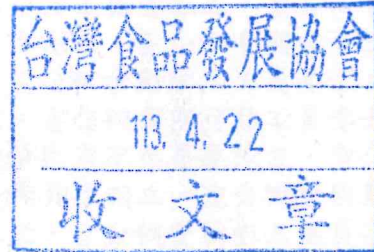 台灣食品發展協會
113. 4. 22
收文章